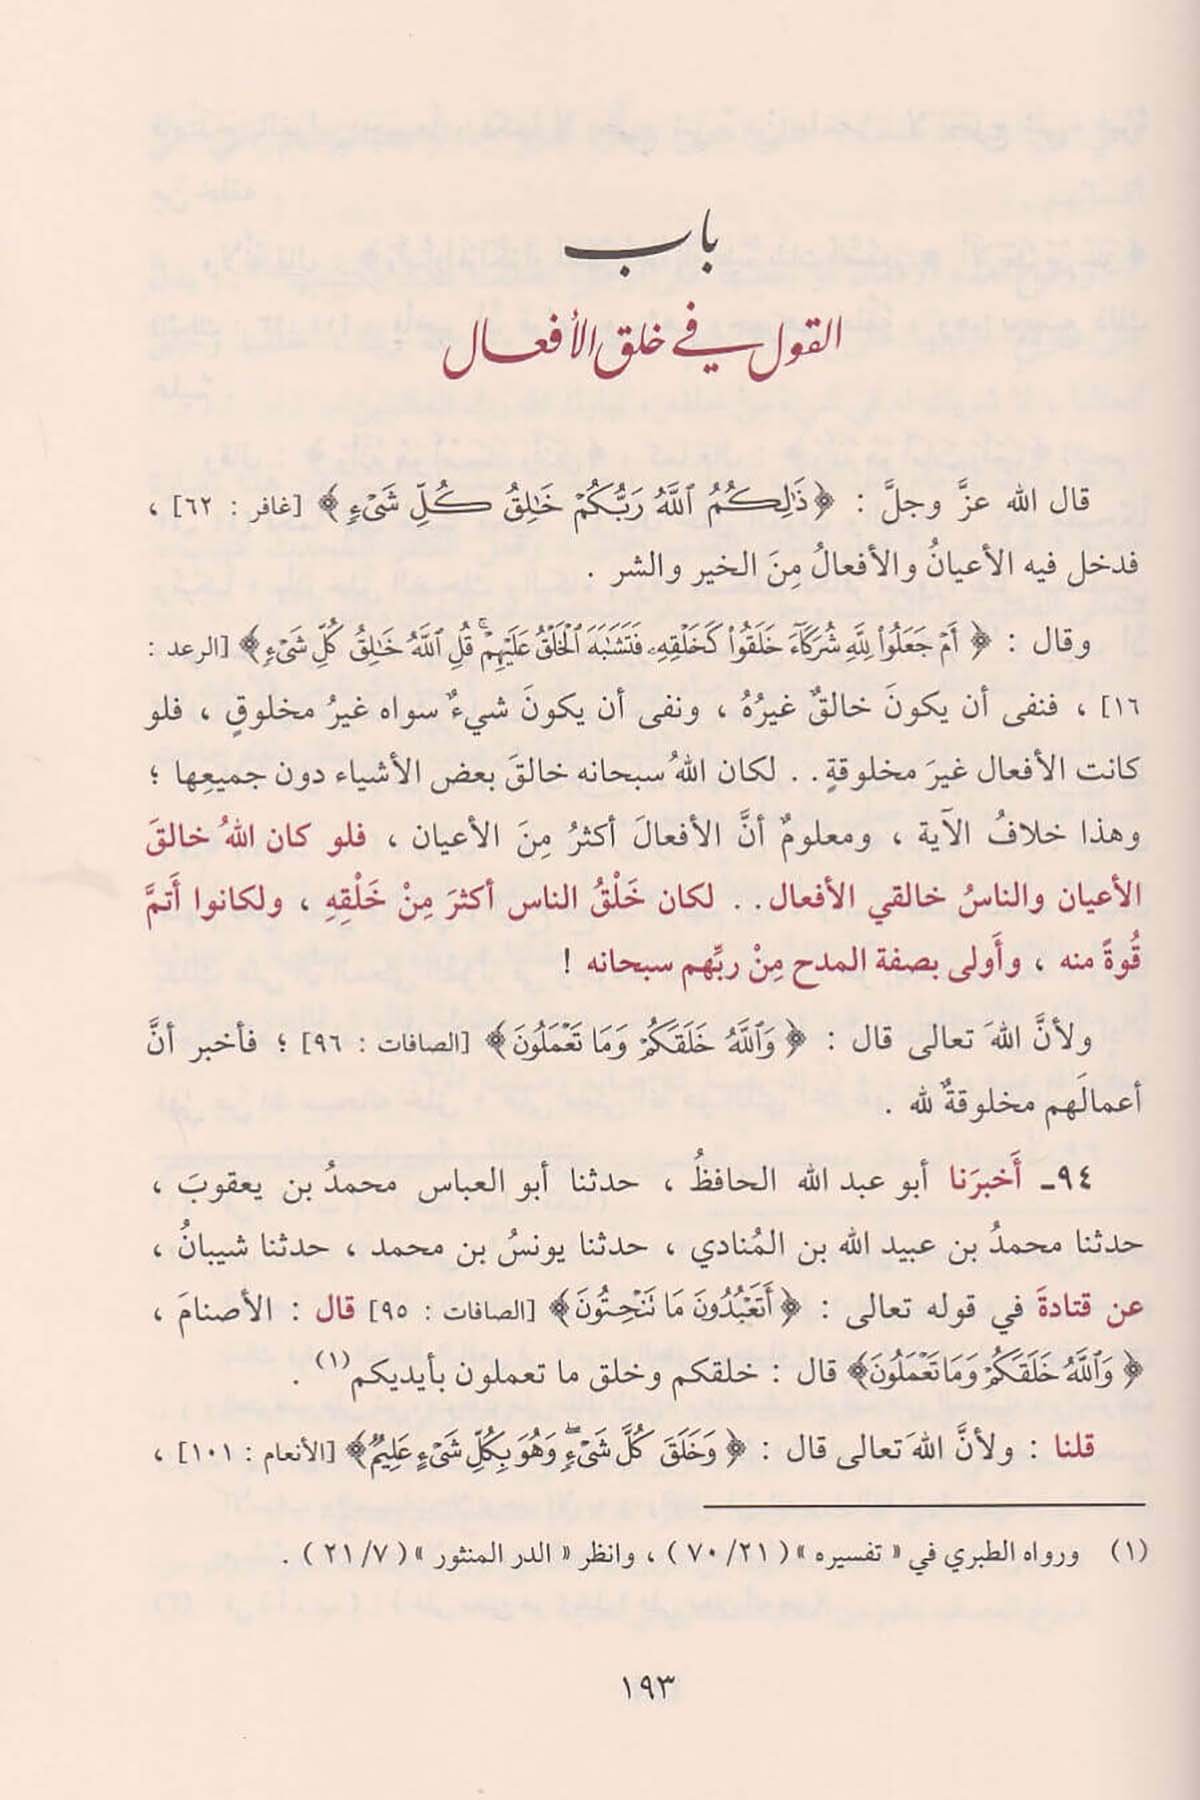 باب
القول في خلق الأفعال
قال الله عزَّ وجلَّ : ﴿ ذَٰلِكُمُ ٱللَّهُ رَبُّكُمْ خَـٰلِقُ كُلِّ شَىْءٍ ﴾ [غافر : ٦٢] ،
فدخل فيه الأعيانُ والأفعالُ مِنَ الخير والشر .
وقال : ﴿ أَمْ جَعَلُوا۟ لِلَّهِ شُرَكَآءَ خَلَقُوا۟ كَخَلْقِهِۦ فَتَشَـٰبَهَ ٱلْخَلْقُ عَلَيْهِمْ ۚ قُلِ ٱللَّهُ خَـٰلِقُ كُلِّ شَىْءٍ ﴾ [الرعد :
١٦] ، فنفى أن يكونَ خالقٌ غيرُهُ ، ونفى أن يكونَ شيءٌ سواه غيرُ مخلوقٍ ، فلو
كانت الأفعال غيرَ مخلوقةٍ . . لكان اللهُ سبحانه خالقَ بعض الأشياء دون جميعِها ؛
وهذا خلافُ الآية ، ومعلومٌ أنَّ الأفعالَ أكثرُ مِنَ الأعيان ، فلو كان اللهُ خالقَ
الأعيان والناسُ خالقي الأفعال . . لكان خَلْقُ الناس أكثرَ مِنْ خَلْقِهِ ، ولكانوا أَتمَّ
قُوةً منه ، وأَولى بصفة المدح مِنْ ربِّهم سبحانه !
ولأنَّ اللهَ تعالى قال : ﴿ وَٱللَّهُ خَلَقَكُمْ وَمَا تَعْمَلُونَ ﴾ [الصافات : ٩٦] ؛ فأخبر أنَّ
أعمالَهم مخلوقةٌ لله .
٩٤ـ أَخبرَنا أبو عبد الله الحافظُ ، حدثنا أبو العباس محمدُ بن يعقوبَ ،
حدثنا محمدُ بن عبيد الله بن المُنادي ، حدثنا يونسُ بن محمد ، حدثنا شيبانُ ،
عن قتادةَ في قوله تعالى : ﴿ أَتَعْبُدُونَ مَا تَنْحِتُونَ ﴾ [الصافات : ٩٥] قال : الأصنامَ ،
﴿ وَٱللَّهُ خَلَقَكُمْ وَمَا تَعْمَلُونَ ﴾ قال : خلقكم وخلق ما تعملون بأيديكم (١) .
قلنا : ولأنَّ اللهَ تعالى قال : ﴿ وَخَلَقَ كُلَّ شَىْءٍ ۖ وَهُوَ بِكُلِّ شَىْءٍ عَلِيمٌ ﴾ [الأنعام : ١٠١] ،
(١) ورواه الطبري في « تفسيره » ( ٧٠/٢١ ) ، وانظر « الدر المنثور » ( ٢١/٧ ) .
١٩٣